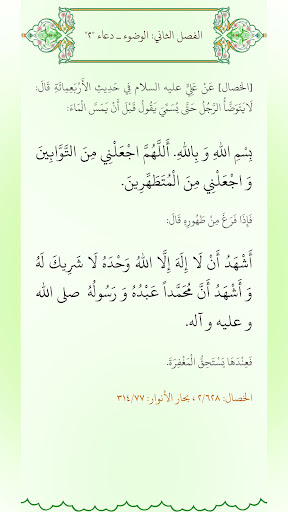 الفصل الثاني: الوضوء ـ دعاء "٢"
[الخصال] عَنْ عَلِيٍّ عليه السلام في حَدِيثِ الْأَرْبَعِمِائَةِ قَالَ:
لَا يَتَوَضَّأُ الرَّجُلُ حَتَّى يُسَمِّيَ يَقُولُ قَبْلَ أَنْ يَمَسَّ الْمَاءَ:
بِسْمِ اللهِ وَ بِاللهِ. أَللَّهُمَّ اجْعَلْنِي مِنَ التَّوَّابِينَ
وَ اجْعَلْنِي مِنَ الْمُتَطَهِّرِينَ.
فَإِذَا فَرَغَ مِنْ طَهُورِهِ قَالَ:
أَشْهَدُ أَنْ لَا إِلَهَ إِلَّا اللهُ وَحْدَهُ لَا شَرِيكَ لَهُ
وَ أَشْهَدُ أَنَّ مُحَمَّداً عَبْدُهُ وَ رَسُولُهُ صلى الله
و عليه و آله.
فَعِنْدَهَا يَسْتَحِقُّ الْمَغْفِرَةَ.
الخصال: ٢/٦٢٨ ، بحار الأنوار: ٣١٤/٧٧